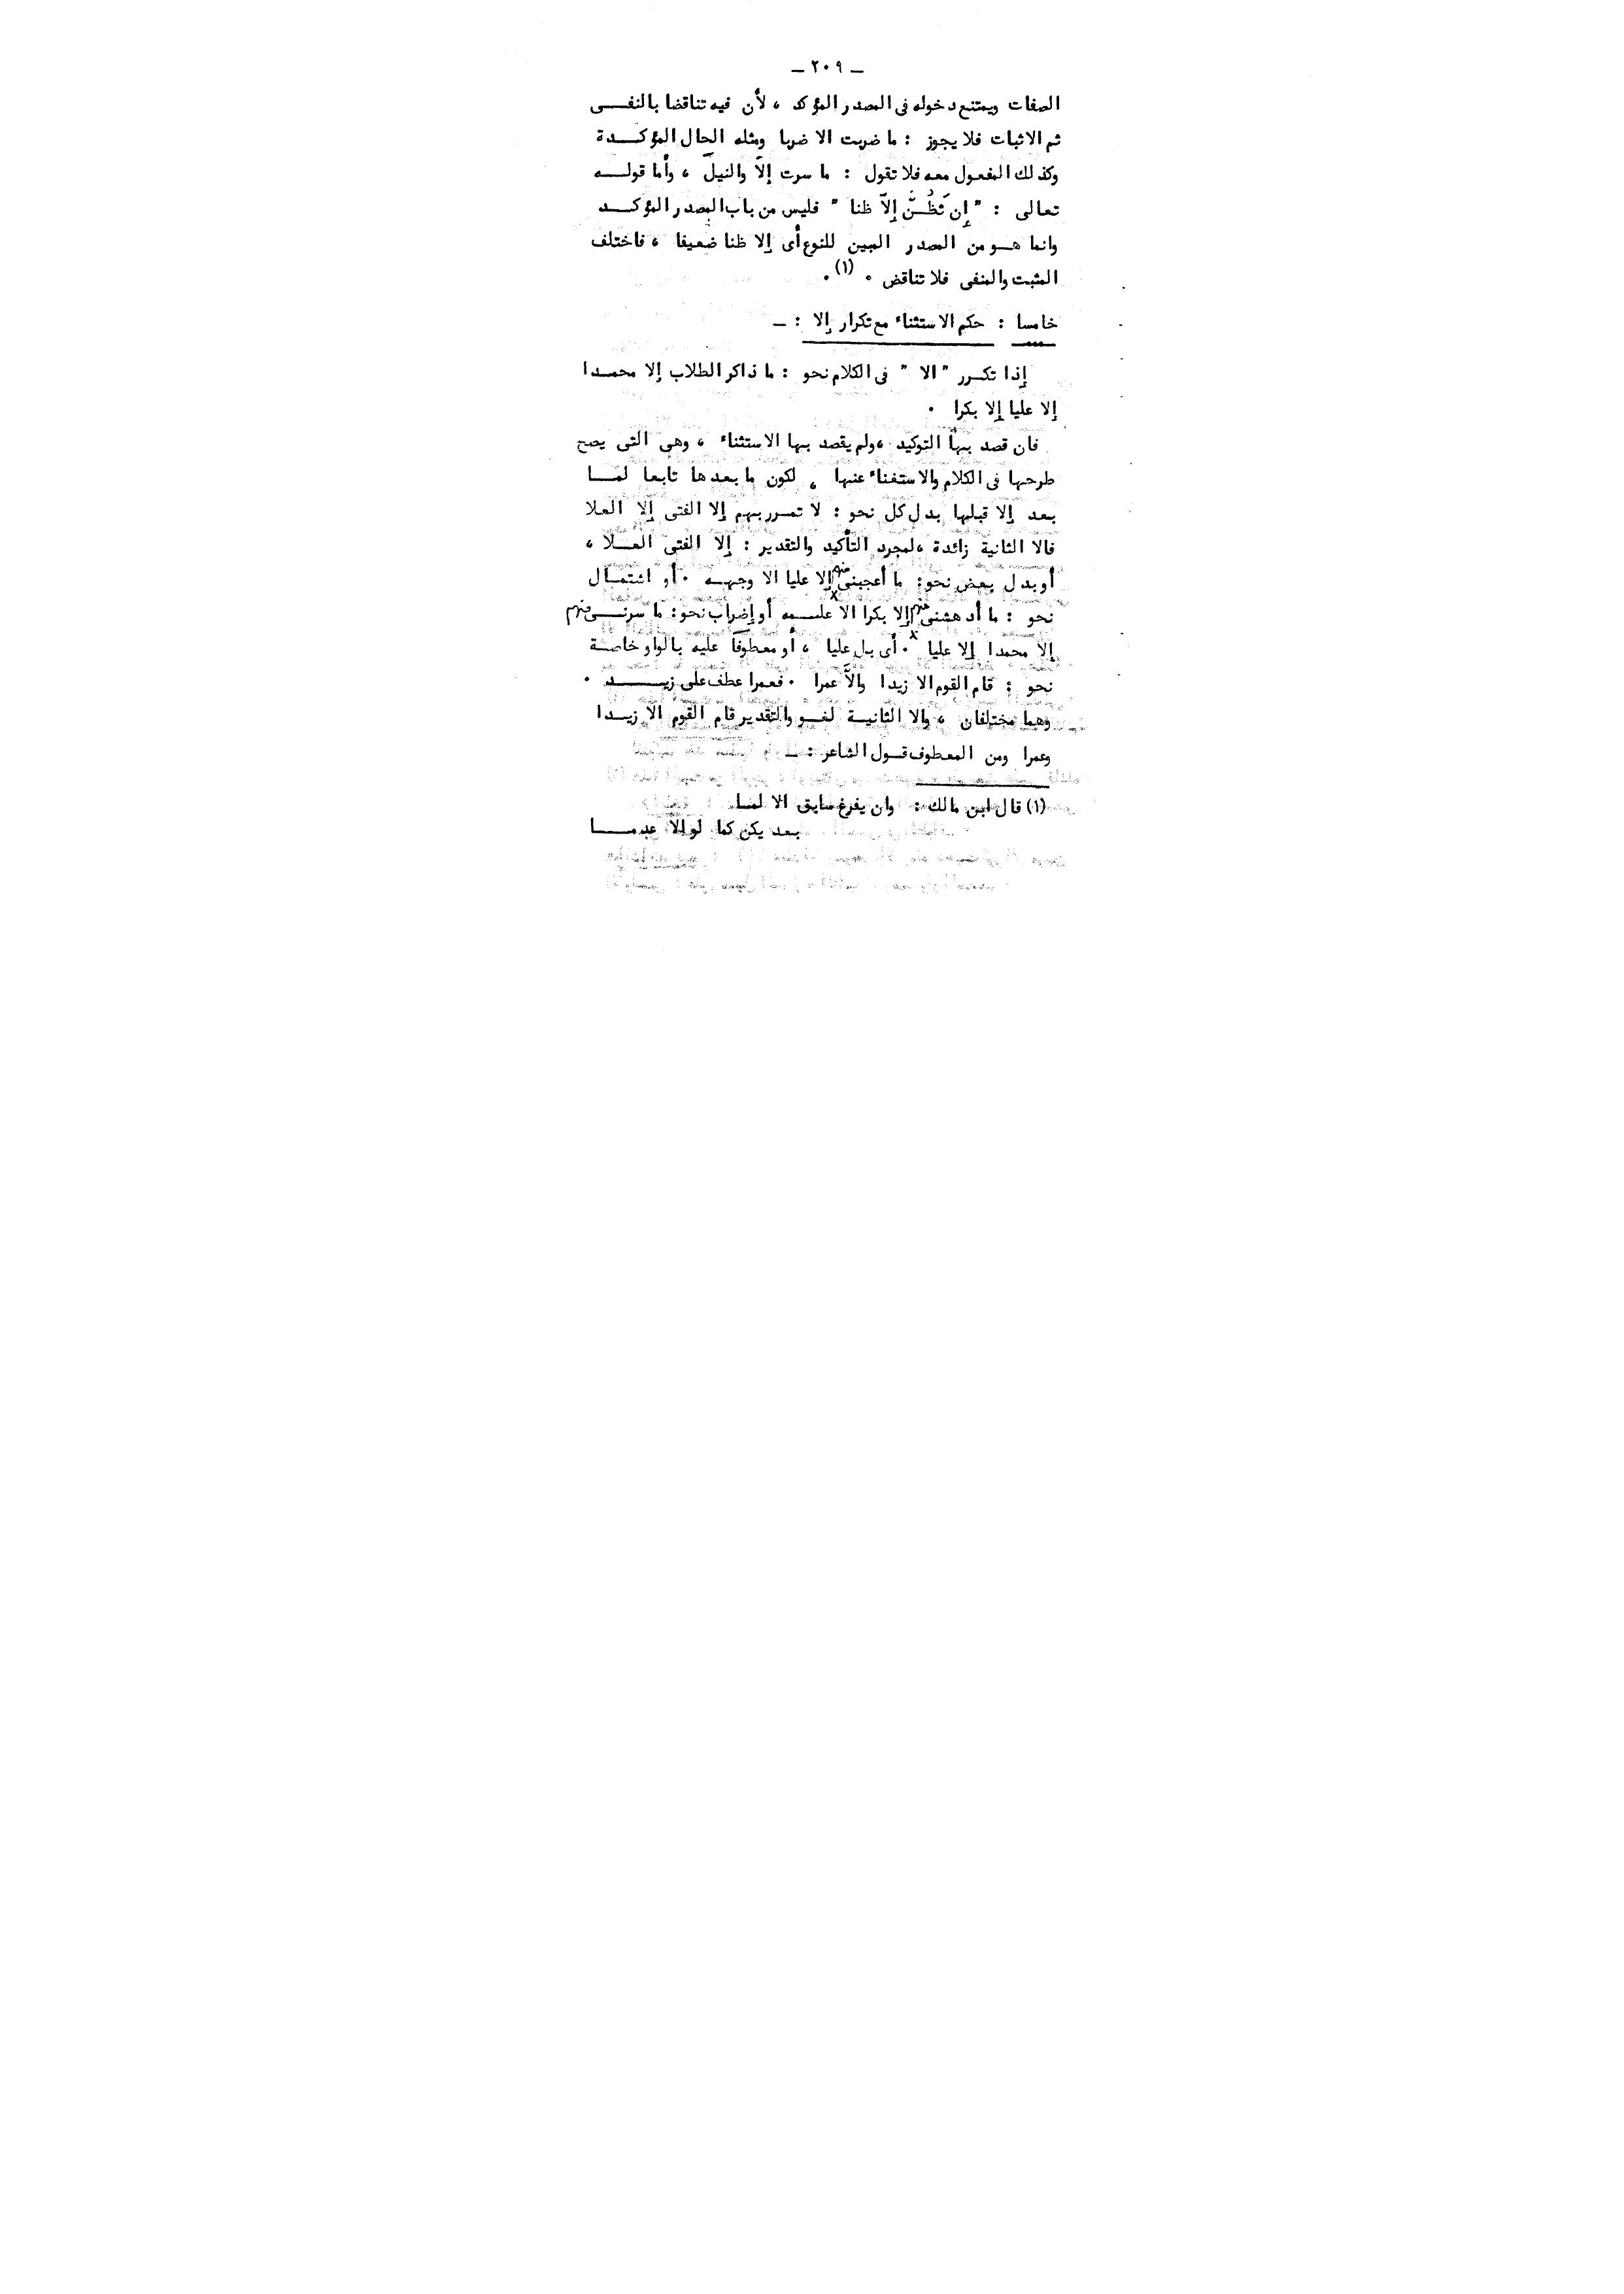 ـ ٢٠٩ ـ
الصفات ويمتنع دخوله فى المصدر المؤكد ، لأن فيه تناقضا بالنفـــى
ثم الاثبات فلا يجوز : ما ضربت الا ضربا ومثله الحال المؤكـــدة
وكذلك المفعول معه فلا تقول : ما سرت إلاَّ والنيلَ ، وأما قولـــه
تعالى : " إن نَظُــنُّ إلاَّ ظنا " فليس من باب المصدر المؤكـــد
وانما هـو من المصدر المبين للنوع أى إلا ظنا ضعيفا ، فاختلف
المثبت والمنفى فلا تناقض ٠ (١) ٠
خامسا : حكم الاستثناء مع تكرار إلا : ـ
إذا تكـرر " الا " فى الكلام نحو : ما ذاكر الطلاب إلا محمـدا
إلا عليا إلا بكرا ٠
فان قصد بها التوكيد ، ولم يقصد بها الاستثناء ، وهى التى يصح
طرحها فى الكلام والاستغناء عنها ، لكون ما بعدها تابعا لمـــا
بعد إلا قبلها بدل كل نحو : لا تمـرر بهم إلا الفتى إلا العلا
فالا الثانية زائدة ، لمجرد التأكيد والتقدير : إلا الفتى العـــلا ،
أو بدل بعض نحو : ما أعجبنى منهم إلا عليا الا وجهـه ٠ أو اشتمـال
نحو : ما أدهشنى منهم إلا بكرا الا علمـــه أو إضراب نحو : ما سرنـــى منهم
إلا محمدا إلا عليا ٠ أى بل عليا ، أو معطوفا عليه بالواو خاصـة
نحو : قام القوم الا زيدا والاَّ عمرا ٠ فعمرا عطف على زيــــد ٠
وهما مختلفان ، والا الثانيـة لغـو والتقدير قام القوم الا زيـدا
وعمرا ومن المعطوف قـول الشاعر : ـ
(١) قال ابن مالك : وان يفرغ سابق الا لمـا
بعد يكن كما لو الاَّ عدمـــا